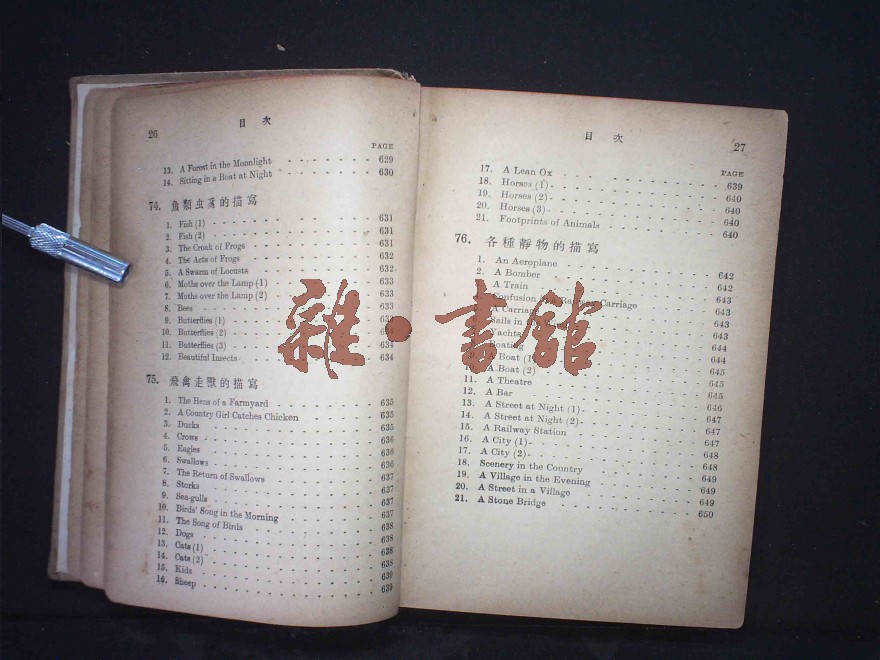 26
目 次
PAGE
13. A Forest in the Moonlight 629
14. Sitting in a Boat at Night 630
74. 魚類虫豸的描寫
1. Fish (1) 631
2. Fish (2) 631
3. The Croak of Frogs 631
4. The Acts of Frogs 632
5. A Swarm of Locusts 632
6. Moths over the Lamp (1) 633
7. Moths over the Lamp (2) 633
8. Bees 633
9. Butterflies (1)
10. Butterflies (2)
11. Butterflies (3) 634
12. Beautiful Insects 634
75. 飛禽走獸的描寫
1. The Hens of a Farmyard 635
2. A Country Girl Catches Chicken 635
3. Ducks 635
4. Crows 636
5. Eagles 636
6. Swallows 636
7. The Return of Swallows 637
8. Storks 637
9. Sea-gulls 637
10. Birds' Song in the Morning 637
11. The Song of Birds 638
12. Dogs 638
13. Cats (1) 638
14. Cats (2) 638
15. Kids 639
16. Sheep 639
目 次
27
PAGE
17. A Lean Ox 639
18. Horses (1) 640
19. Horses (2) 640
20. Horses (3) 640
21. Footprints of Animals 640
76. 各種靜物的描寫
1. An Aeroplane 642
2. A Bomber 642
A Train 643
Confusion in a Railway Carriage 643
A Carriage 643
Sails in 643
Yachts 644
Boating 644
9. A Boat (1) 645
10. A Boat (2) 645
11. A Theatre 645
12. A Bar 646
13. A Street at Night (1) 647
14. A Street at Night (2) 647
15. A Railway Station 647
16. A City (1) 648
17. A City (2) 648
18. Scenery in the Country 649
19. A Village in the Evening 649
20. A Street in a Village 649
21. A Stone Bridge 650
雜·書館